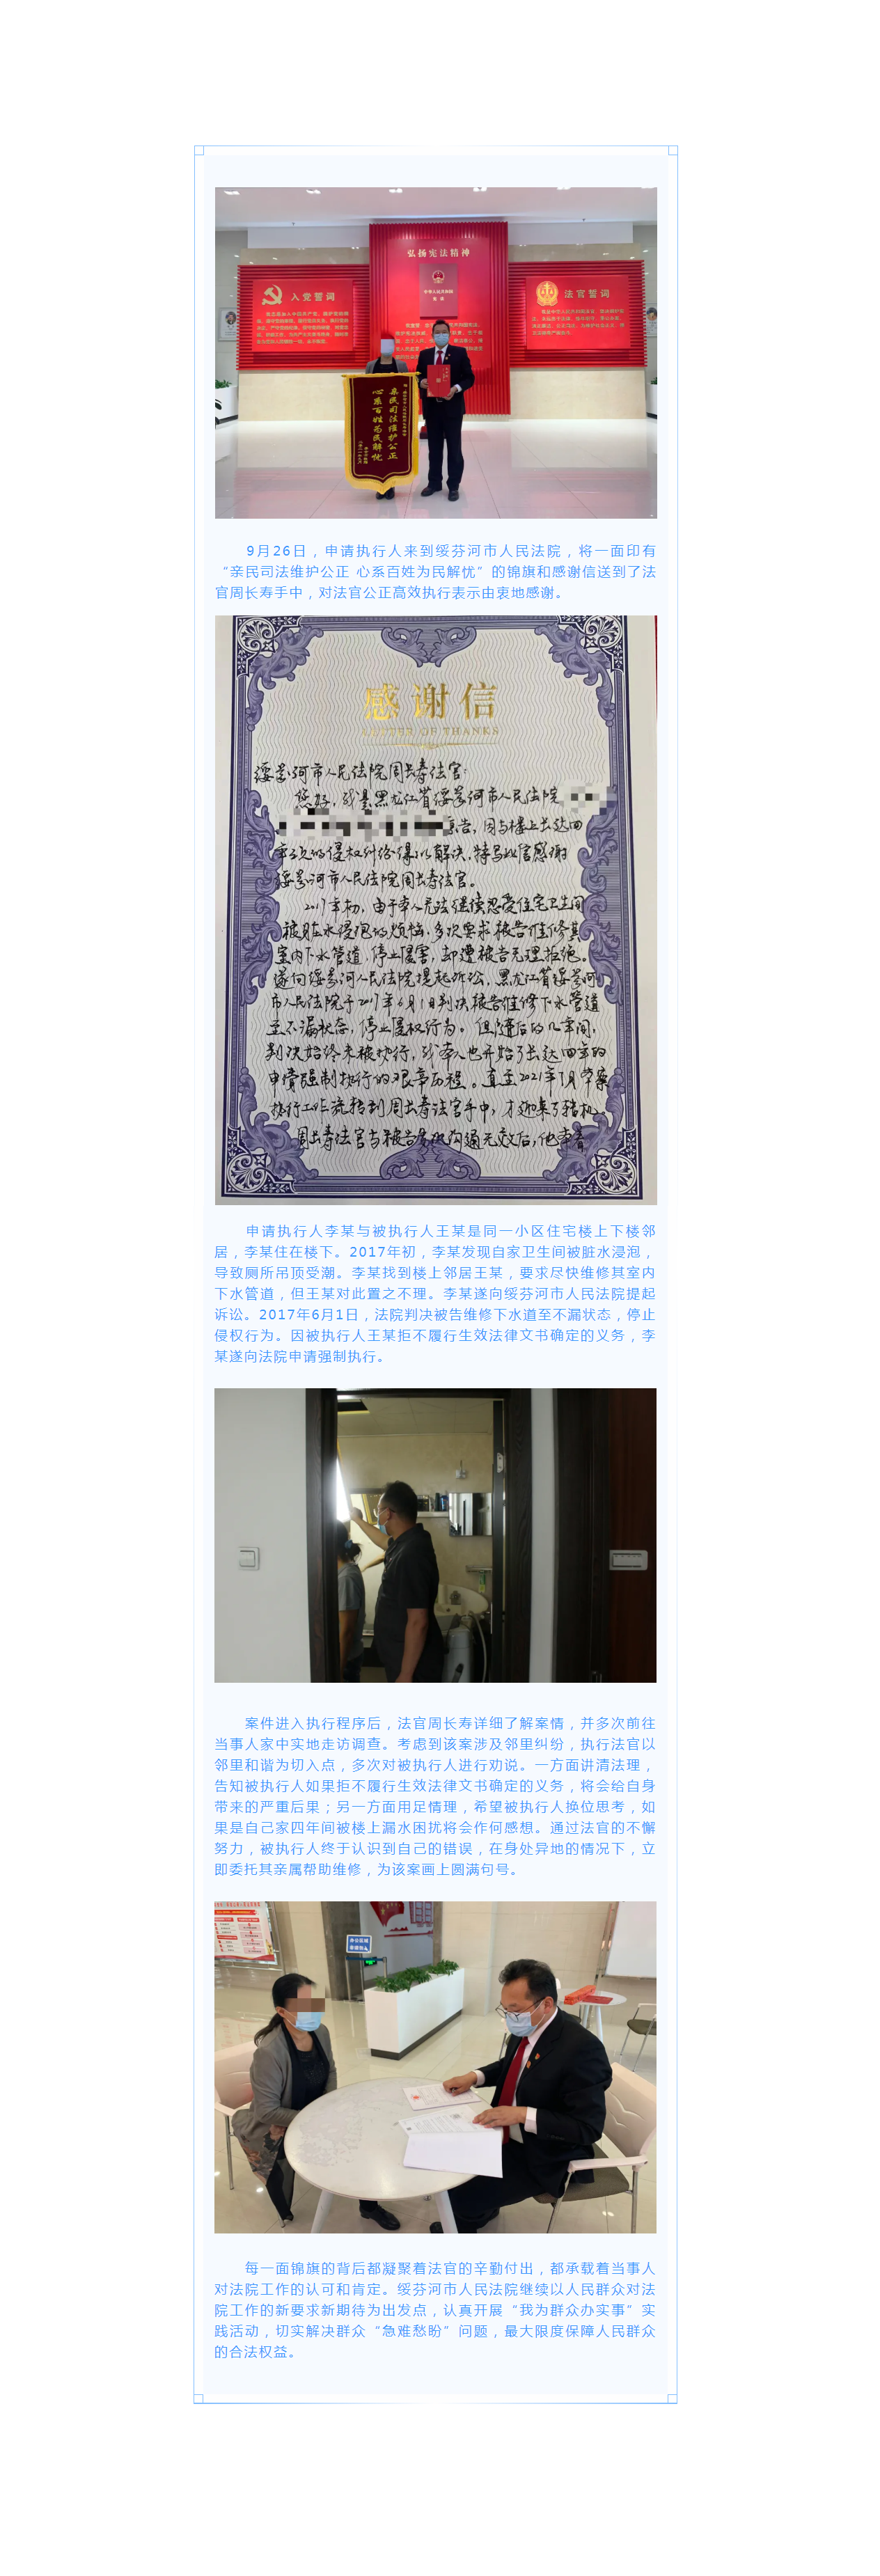 弘扬宪法精神
中华人民共和国
宪法
入党誓词
法官誓词
亲民司法维护公正
心系百姓为民解忧
9月26日，申请执行人来到绥芬河市人民法院，将一面印有
“亲民司法维护公正 心系百姓为民解忧”的锦旗和感谢信送到了法
官周长寿手中，对法官公正高效执行表示由衷地感谢。
感谢信
LETTER OF THANKS
绥芬河市人民法院周长寿法官：
您好，我是黑龙江省绥芬河市人民法院
原告，因与楼上长达四
年之久的侵权纠纷得以解决，特写此信感谢
绥芬河市人民法院周长寿法官。
2017年初，由于本人无法继续忍受住宅卫生间
被脏水侵泡的烦恼，多次要求被告维修其
室内下水管道，停止侵害，却遭被告无理拒绝。
遂向绥芬河人民法院提起诉讼，黑龙江省绥芬河
市人民法院于2017年6月1日判决被告维修下水管道
至不漏状态，停止侵权行为。但随后的几年间，
判决始终未被执行，我本人也开始了长达四年的
申请强制执行的艰辛历程。直至2021年1月本案
执行工作流转到周长寿法官手中，才迎来了转机。
周长寿法官与被告多次沟通无效后，他本着
申请执行人李某与被执行人王某是同一小区住宅楼上下楼邻
居，李某住在楼下。2017年初，李某发现自家卫生间被脏水浸泡，
导致厕所吊顶受潮。李某找到楼上邻居王某，要求尽快维修其室内
下水管道，但王某对此置之不理。李某遂向绥芬河市人民法院提起
诉讼。2017年6月1日，法院判决被告维修下水道至不漏状态，停止
侵权行为。因被执行人王某拒不履行生效法律文书确定的义务，李
某遂向法院申请强制执行。
案件进入执行程序后，法官周长寿详细了解案情，并多次前往
当事人家中实地走访调查。考虑到该案涉及邻里纠纷，执行法官以
邻里和谐为切入点，多次对被执行人进行劝说。一方面讲清法理，
告知被执行人如果拒不履行生效法律文书确定的义务，将会给自身
带来的严重后果；另一方面用足情理，希望被执行人换位思考，如
果是自己家四年间被楼上漏水困扰将会作何感想。通过法官的不懈
努力，被执行人终于认识到自己的错误，在身处异地的情况下，立
即委托其亲属帮助维修，为该案画上圆满句号。
办公区域
每一面锦旗的背后都凝聚着法官的辛勤付出，都承载着当事人
对法院工作的认可和肯定。绥芬河市人民法院继续以人民群众对法
院工作的新要求新期待为出发点，认真开展“我为群众办实事”实
践活动，切实解决群众“急难愁盼”问题，最大限度保障人民群众
的合法权益。